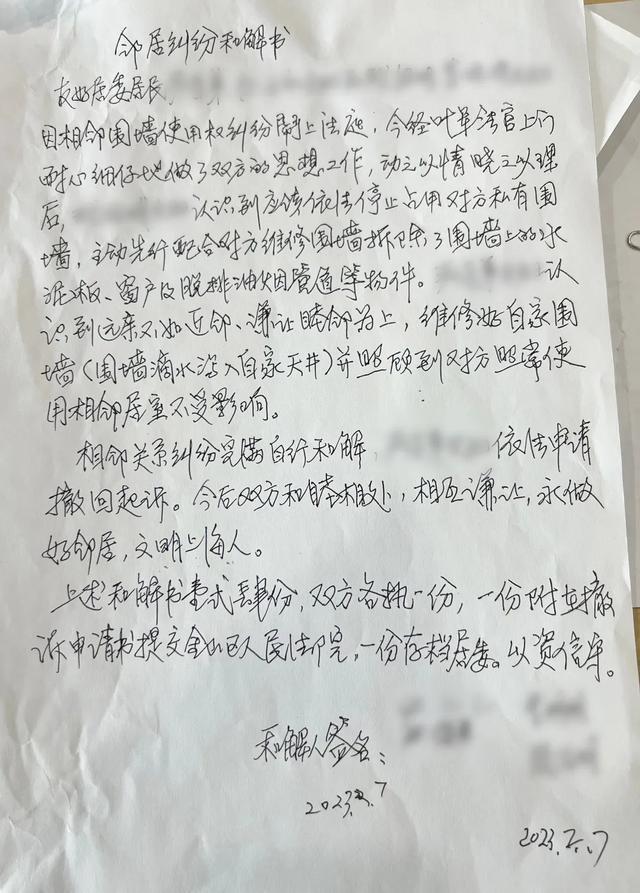 邻居纠纷和解书
友好居委居民
因相邻围墙使用权纠纷闹上法庭，今经叶军法官上门
耐心细仔地做了双方的思想工作，动之以情晓之以理
后，认识到应该依法停止占用对方私有围
墙，主动先行配合对方维修围墙拆除了围墙上的水
泥板、窗户及脱排油烟管道等物件。认
识到远亲不如近邻、谦让睦邻为上，维修好自家围
墙（围墙滴水泻入自家天井）并照顾到对方照常使
用相邻居室不受影响。
相邻关系纠纷完满自行和解，依法申请
撤回起诉。今后双方和睦相处，相互谦让，永做
好邻居，文明上海人。
上述和解书壹式肆份，双方各执一份，一份附带撤
诉申请书提交金山区人民法院，一份存档居委。以资信守。
和解人签名：
2023.2.7
2023.2.7